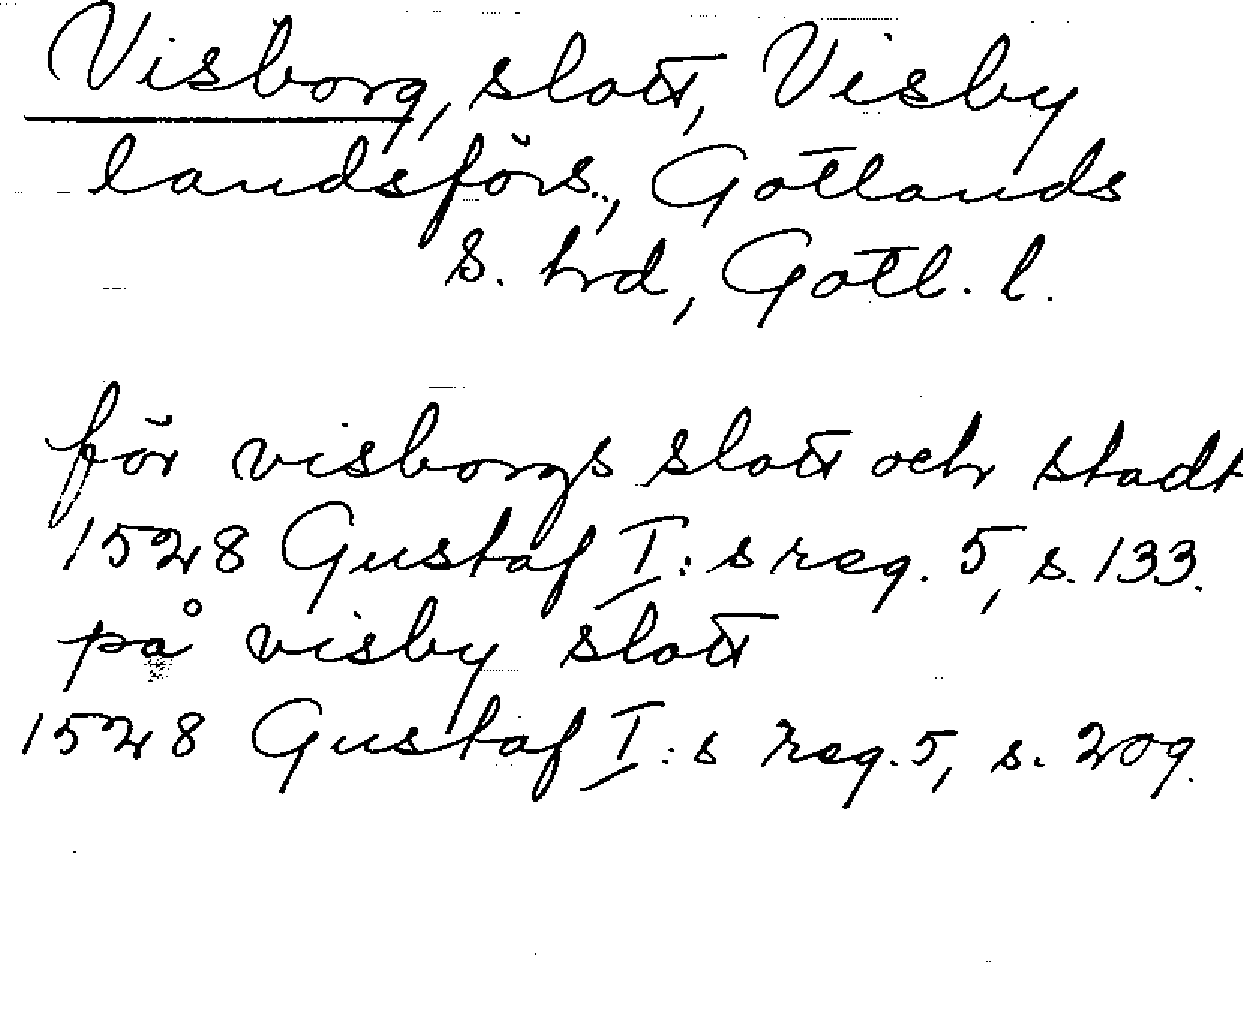 Visborg, slott, Visby
landsförs., Gotlands
s. hrd, Gotl. l.
för visborgs slott och stadt
1528 Gustaf I:s reg. 5, s. 133.
på visby slott
1528 Gustaf I:s reg. 5, s. 209.